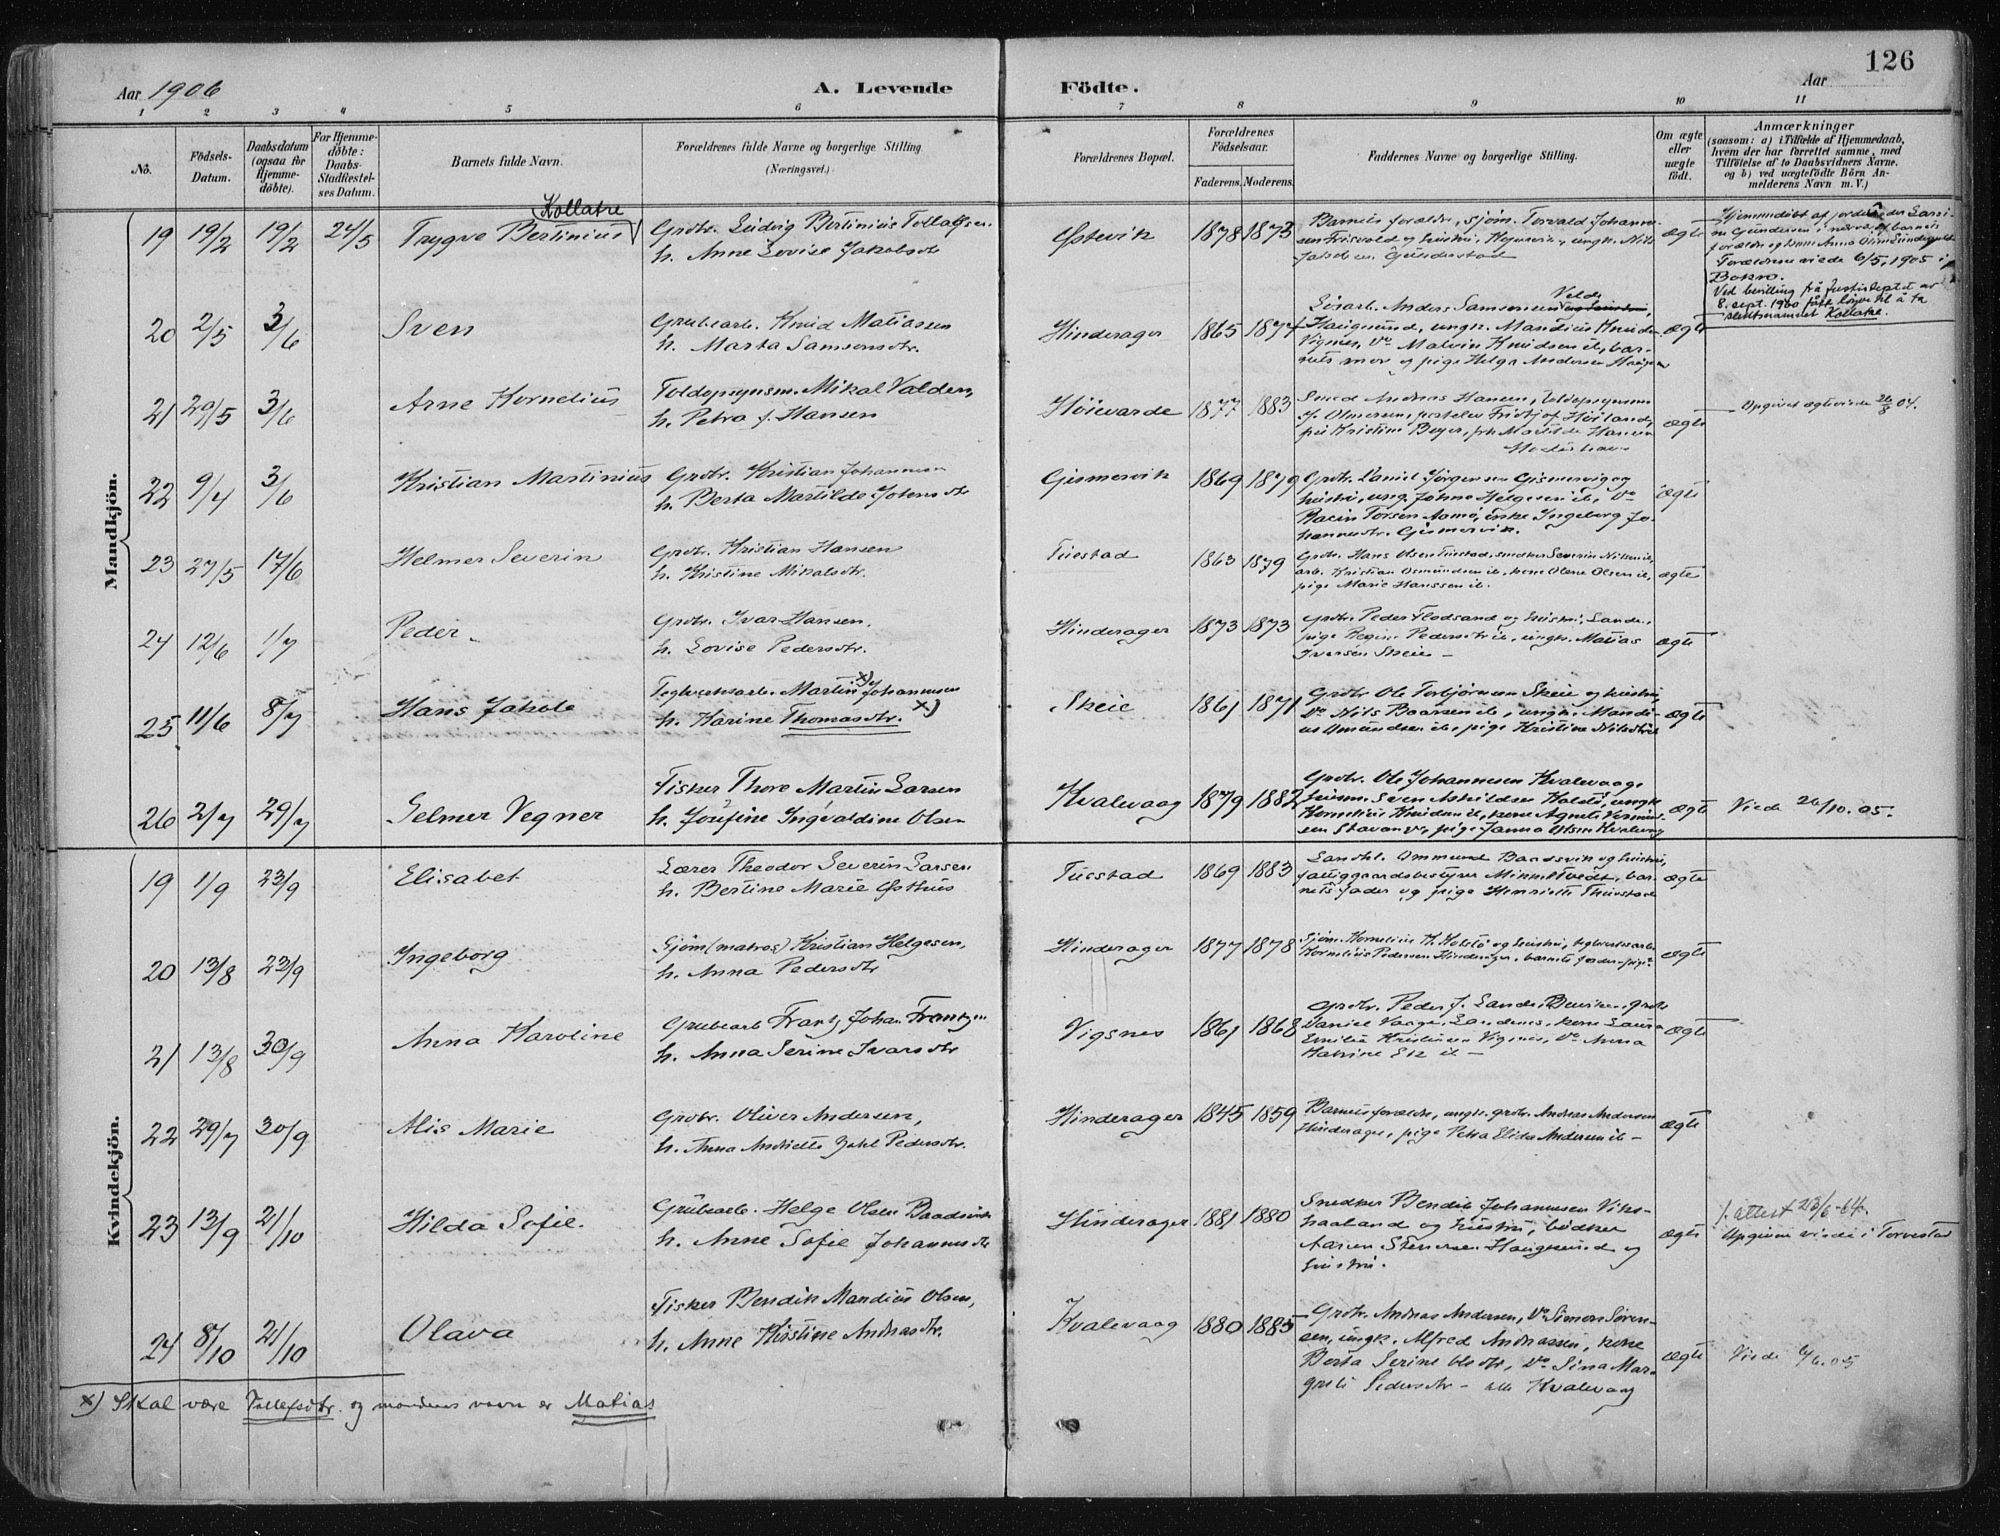 126
Aar 1906
A. Levende
Födte.
Aar
1 2 3 4 5 6 7 8 9 10 11
No.
Födsels-Datum.
Daabsdatum (ogsaa for Hjemmedöbte).
For Hjemmedöbte: Daabs-Stadfæstelses Datum.
Barnets fulde Navn.
Forældrenes fulde Navne og borgerlige Stilling
(Næringsvei.)
Forældrenes Bopæl.
Forældrenes Födselsaar.
Faderens. Moderens.
Faddernes Navne og borgerlige Stilling.
Om ægte eller uægte födt.
Anmærkninger
(saasom: a) i Tilfælde af Hjemmedaab,
hvem der har forrettet samme, med
Tilföielse af to Daabsvidners Navne.
og b) ved uægtefödte Börn An-
melderens Navn m. V.)
Mandkjön.
Kollatre
19 19/2 19/2 24/5 Trygve Bertinius
Grbr. Ludvig Bertinius Tollaksen
h. Anne Lovise Jakobsdtr
Østevik 1878 1873
Barnets forældre, sjøm. Torvald Johanne-
ægte
Forældrene viede 6/5, 1905 i
Bokn.
Ved bevilling frå Justisdeptet av
8. sept. 1960 fått løyve til å ta
slektsnamnet
20 2/5 3/6 Sven
Grubearb. Knud Matiassen
h. Marta Samsonsdtr.
Hinderager 1865 1874
Anders Samsonsen
Haugesund, ungk. Mandius Knudsen
Vignes, Malvin Knudsen ib, bar-
nets mor og pige Helga Andersen
ægte
21 29/5 3/6 Arne Kornelius
Toldopsynsm. Mikal Valder,
h. Petra f. Hansen
Høievarde 1877 1883
Smed Andreas Hansen, toldopsynsm
ægte
Opgivet ægteviede 26/8 04.
22 9/4 3/6 Kristian Martinius
Grbr. Kristian Johannesen
h. Berta Martilde Jotensdtr
Gismervik 1869 1879
Grbr. Daniel Jørgensen Gismervig og
hustru, ung. Johan Helgesen ib,
Torsen Aamø, enke Ingeborg Jo-
hannesdtr. Gismervik.
ægte
23 27/5 17/6 Helmer Severin
Grbr. Kristian Hansen
h. Kristine Mikalsdtr.
Tuestad 1863 1879
Grbr. Hans Olsen Tuestad, snedker Severin Nilsen ib
arb. Kristian Osmundsen ib, kone Olene Olsen ib,
pige Marie Hanssen ib.
ægte
24 12/6 1/7 Peder
Grbr. Ivar Hansen,
h. Lovise Pedersdtr.
Hinderager 1873 1873
Grbr. Peder Flodsand og hustru, Sande,
pige Regine Pedersdtr ib, ungk. Matias
Iversen Skeie
ægte
25 11/6 8/7 Hans Jakob
Teglverksarb. Martin x) Johannesen
h. Karine Thomasdtr. x)
Skeie 1861 1871
Grbr Ole Torbjørnsen Skeie og hustru,
Do Nils Baarsen ib, ungk. Mandi-
us Osmundsen ib, pige Kristine Nilsdtr ib
ægte
26 2/7 29/7 Selmer Vegner
Fisker Thore Martin Larsen
h. Josefine Ingvaldine Olsen
Kvalevaag 1879 1882
Grbr. Ole Johannesen Kvalevaag
husm. Sven Askildsen Kolstø, ungk
Kornelius Knudsen ib, kone Agnete
Stavanger, pige Janna Olsen Kvalevaag
ægte
Viede 26/10. 05.
Kvindekjön.
19 1/9 23/9 Elisabet
Lærer Theodor Severin Larsen
h. Bertine Marie Østhus
Tuestad 1869 1883
Landhl. Ommund Baadsvik og hustru,
fattiggaardsbestyrer Mikkel Tvedt, bar-
nets fader og pige Henriette Thuestad
ægte
20 13/8 23/9 Ingeborg
Sjøm (matros) Kristian Helgesen,
h. Anna Pedersdtr
Hinderager 1877 1878
Sjøm. Kornelius K. Kolstø og hustru, teglverksarb
Kornelius Pedersen Hinderager, barnets fader
ægte
21 13/8 30/9 Anna Karoline
Grubearb Frantz Johan Frantzen
h. Anna Serine Ivarsdtr
Vigsnes 1861 1868
Grbr. Peder J. Sande
Daniel Vaage, Sandenes, kone Laura
Emilie Kristensen Vigsnes, Do Anna
Katrine ib
ægte
22 29/7 30/9 Alis Marie
Grbr. Oliver Andersen,
h. Anna Andrielle Pedersdtr.
Hinderager 1845 1859
Barnets forældre, ungk. grbr. Andreas Andersen
Hinderager, pige Petra Elida Andersen ib
ægte
23 13/9 21/10 Hilda Sofie
Grubearb. Helge Olsen Baadsvik
h. Anne Sofie Johannesdtr
Hinderager 1881 1880
Snedker Bendik Johannesen
og hustru, bødker
Stensen Haugesund og
hustru.
ægte
attest 23/6-64.
Opgivne viede i Torvestad
24 8/10 21/10 Olava
Fisker Bendik Mandius Olsen,
h. Anne Kirstine Andreasdtr.
Kvalevaag 1880 1885
Grbr. Andreas Andersen, Do Simon Søren-
sen, ungk. Alfred Andreassen, kone
Berta Serine Olsdtr, Do Sina Mar-
grete Pedersdtr - alle Kvalevaag
ægte
Viede 4/6.05
x) Skal være Tollefsdtr. og mandens navn er Matias